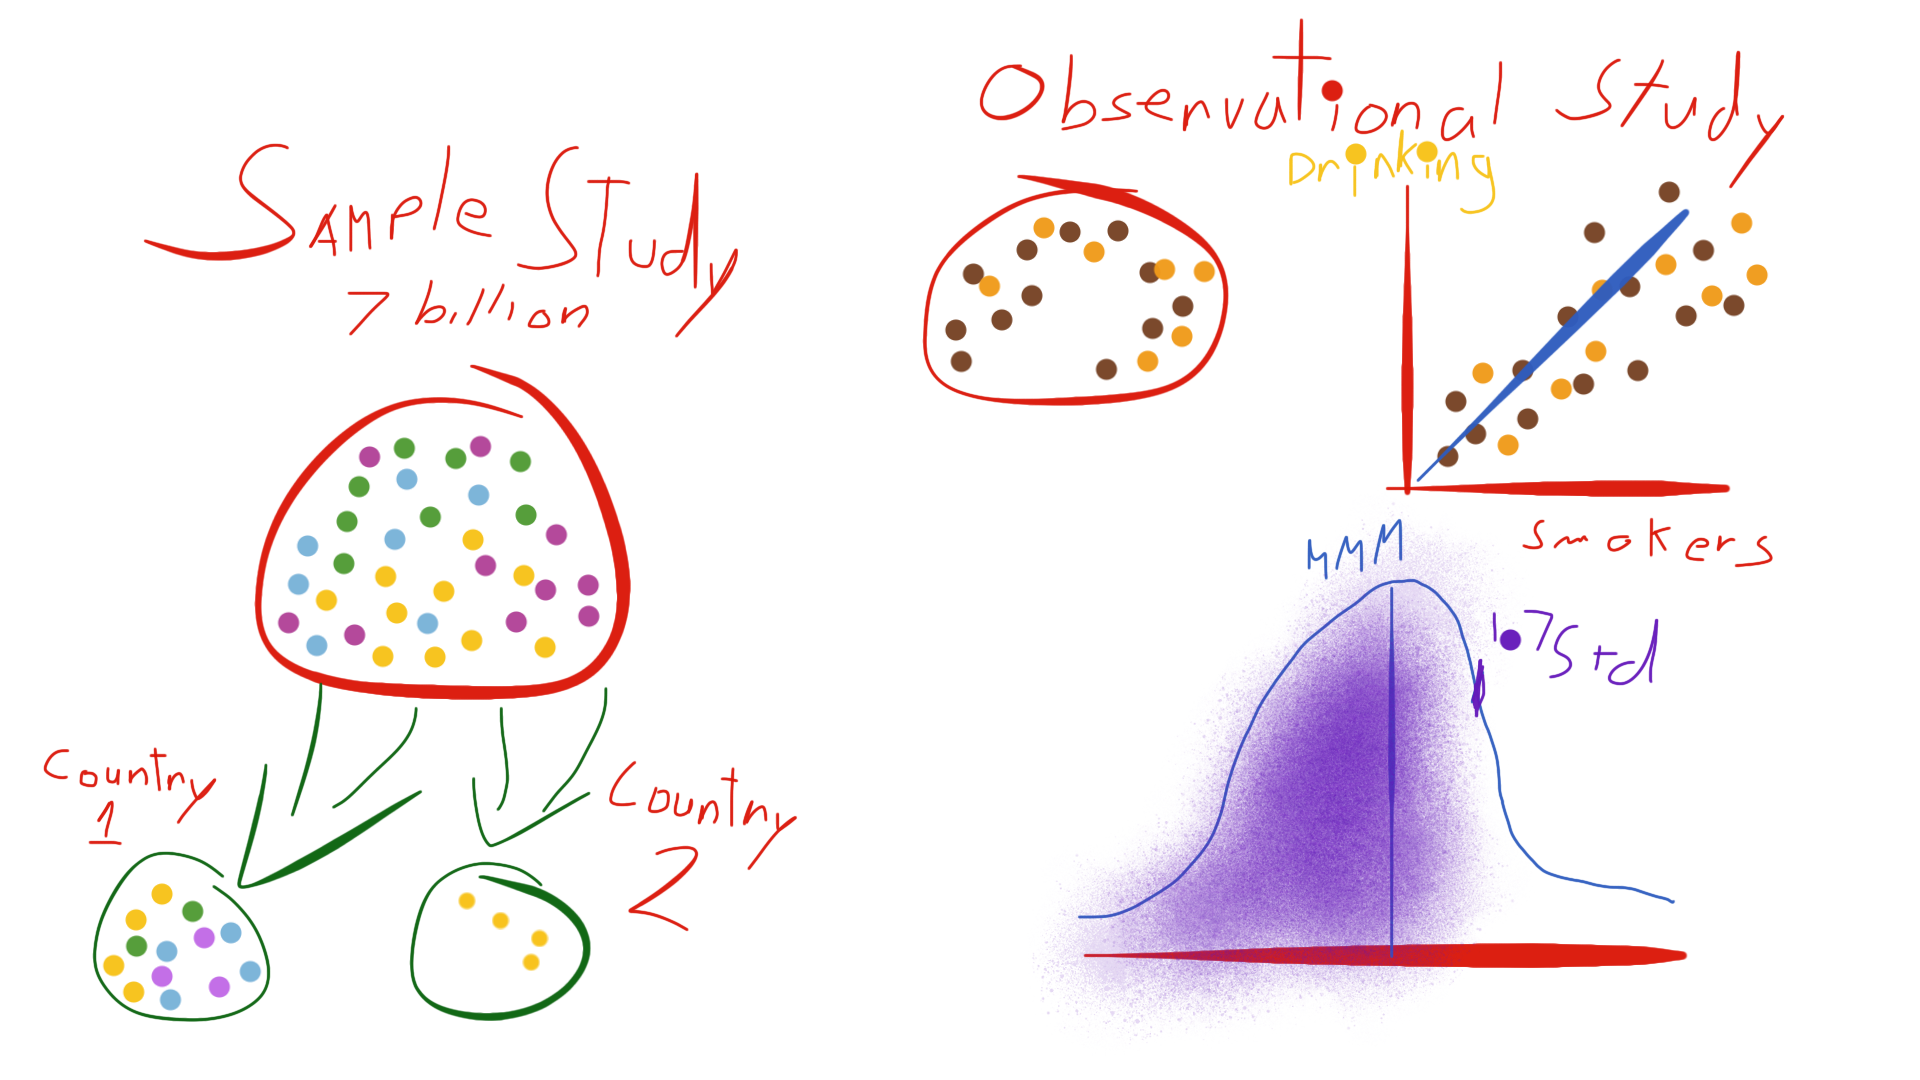 Sample Study
7 billion
Country
1
Country
2
Observational Study
Drinking
smokers
MMM
1.7 Std